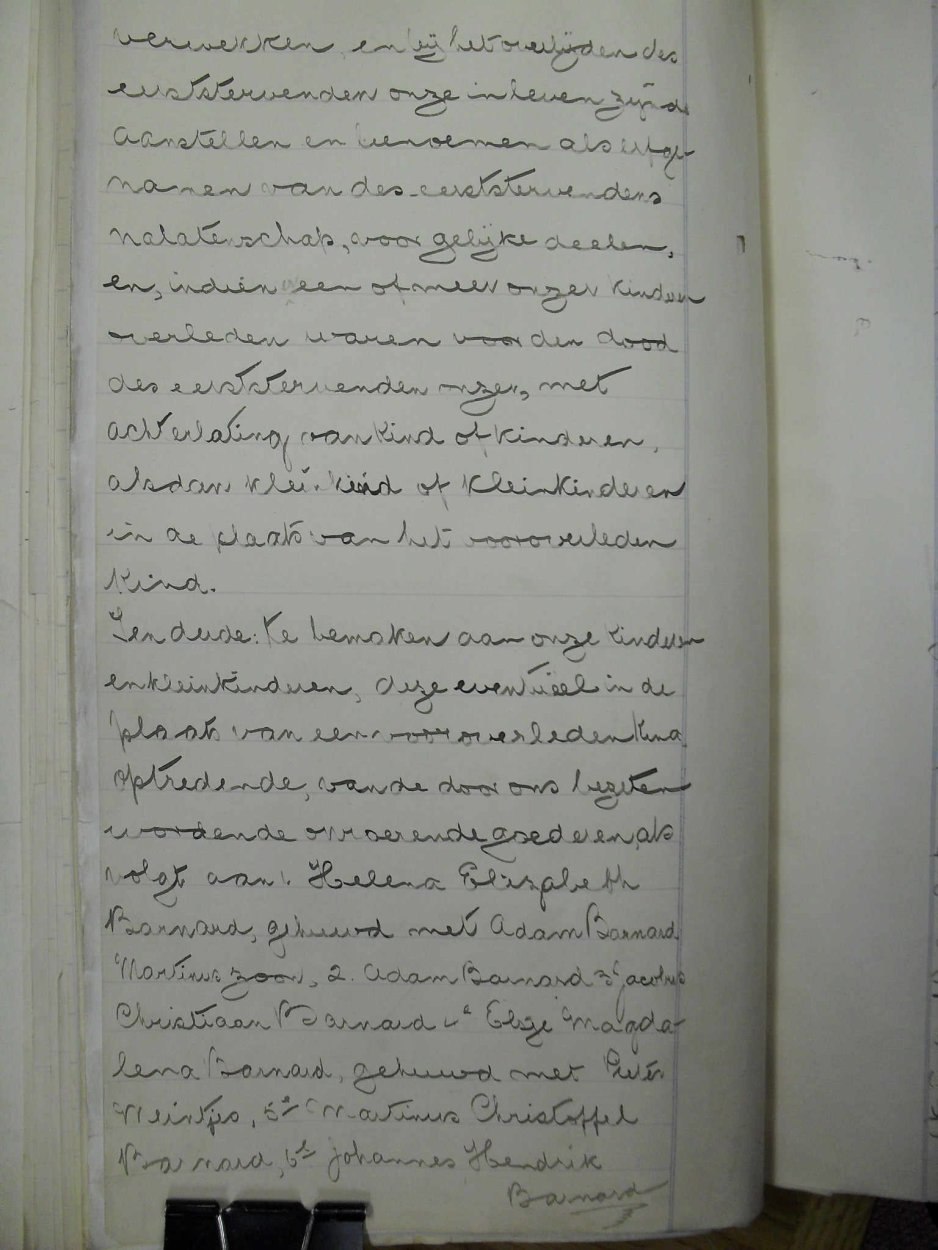 verwekken, en bij het overlijden des
eerststervenden onze in leven zijnde
aanstellen en benoemen als erfge-
namen van des eerststervenders
nalatenschap, voor gelijke deelen,
en, indien een of meer onzer kinderen
overleden waren voor den dood
des eerststervenden onzer, met
achterlating van kind of kinderen,
alsdan kleinkind of kleinkinderen
in de plaats van het vooroverleden
kind.
Ten derde: te bemaken aan onze kinderen
en kleinkinderen, deze eventueel in de
plaats van een vooroverleden kind
optredende, van de door ons bezeten
wordende onroerende goederen, als
volgt aan: Helena Elizabeth
Barnard, gehuwd met Adam Barnard
Martinus zoon, 2. Adam Barnard 3e Jacobus
Christiaan Barnard 4e Elsze Magda-
lena Barnard, gehuwd met Pieter
Meintjes, 5e Martinus Christoffel
Barnard, 6e Johannes Hendrik
Barnard